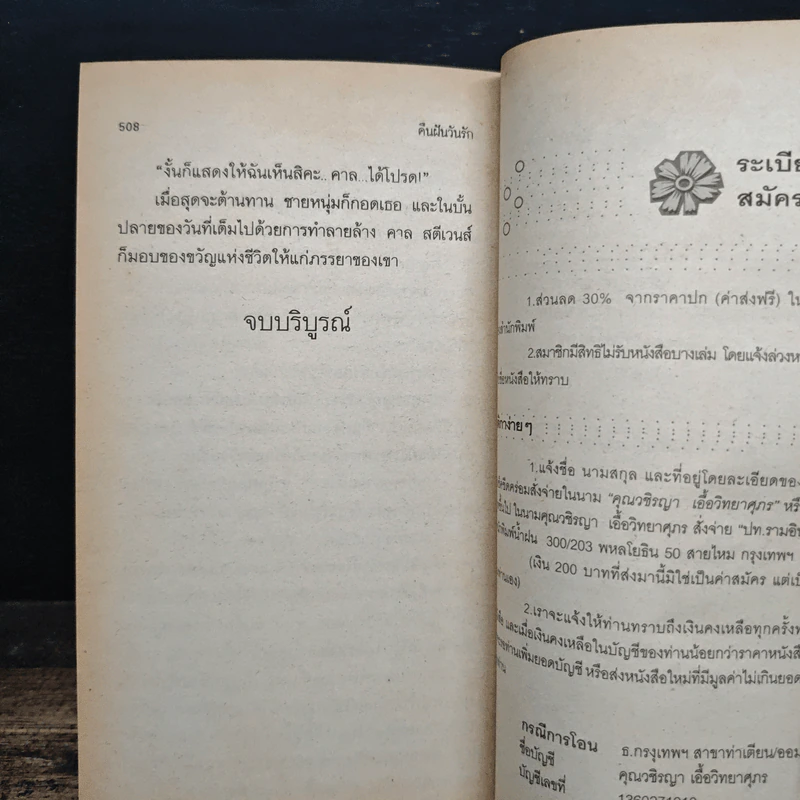 508
คืนฝันวันรัก
“งั้นก็แสดงให้ฉันเห็นสิคะ.. คาล...ได้โปรด!”
เมื่อสุดจะต้านทาน ชายหนุ่มก็กอดเธอ และในบั้น
ปลายของวันที่เต็มไปด้วยการทำลายล้าง คาล สตีเวนส์
ก็มอบของขวัญแห่งชีวิตให้แก่ภรรยาของเขา
จบบริบูรณ์
ระเบีย
สมัคร
1.ส่วนลด 30% จากราคาปก (ค่าส่งฟรี) ใน
สำนักพิมพ์
2.สมาชิกมีสิทธิไม่รับหนังสือบางเล่ม โดยแจ้งล่วงห
ชื่อหนังสือให้ทราบ
ง่ายๆ
1.แจ้งชื่อ นามสกุล และที่อยู่โดยละเอียดของ
ขีดคร่อมสั่งจ่ายในนาม “คุณวชิรญา เอื้อวิทยาศุภร” หรื
ในนามคุณวชิรญา เอื้อวิทยาศุภร สั่งจ่าย “ปท.รามอิน
พิมพ์น้ำฝน 300/203 พหลโยธิน 50 สายไหม กรุงเทพฯ
(เงิน 200 บาทที่ส่งมานี้มิใช่เป็นค่าสมัคร แต่เป็
ท่านเอง)
2.เราจะแจ้งให้ท่านทราบถึงเงินคงเหลือทุกครั้งท
และเมื่อเงินคงเหลือในบัญชีของท่านน้อยกว่าราคาหนังสื
ท่านเพิ่มยอดบัญชี หรือส่งหนังสือใหม่ที่มีมูลค่าไม่เกินยอด
กรณีการโอน
ชื่อบัญชี
ธ.กรุงเทพฯ สาขาท่าเตียน/ออม
บัญชีเลขที่
คุณวชิรญา เอื้อวิทยาศุภร